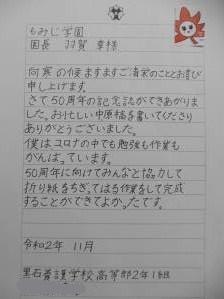 もみじ学園
園長 羽賀 章様
向寒の候ますますご清栄のこととお喜び
申し上げます。
さて50周年の記念誌ができあがりま
した。お忙しい中原稿を書いてくださり
ありがとうございました。
僕はコロナの中でも勉強も作業も
がんばっています。
50周年に向けてみんなと協力して
折り紙をちぎってはる作業をして完成
することができてよかったです。
令和2年 11月
黒石養護学校高等部2年1組